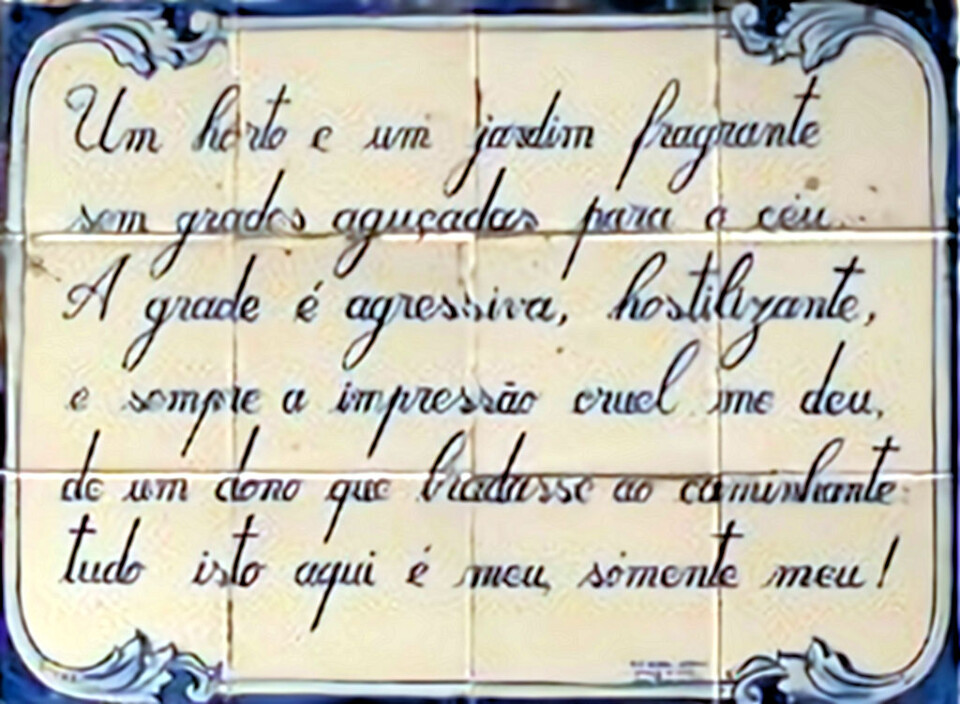 Um horto e um jardim fragrante
sem grades aguçadas para o céu.
A grade é agressiva, hostilizante,
e sempre a impressão cruel me deu,
de um dono que bradasse ao caminhante
tudo isto aqui é meu, somente meu!